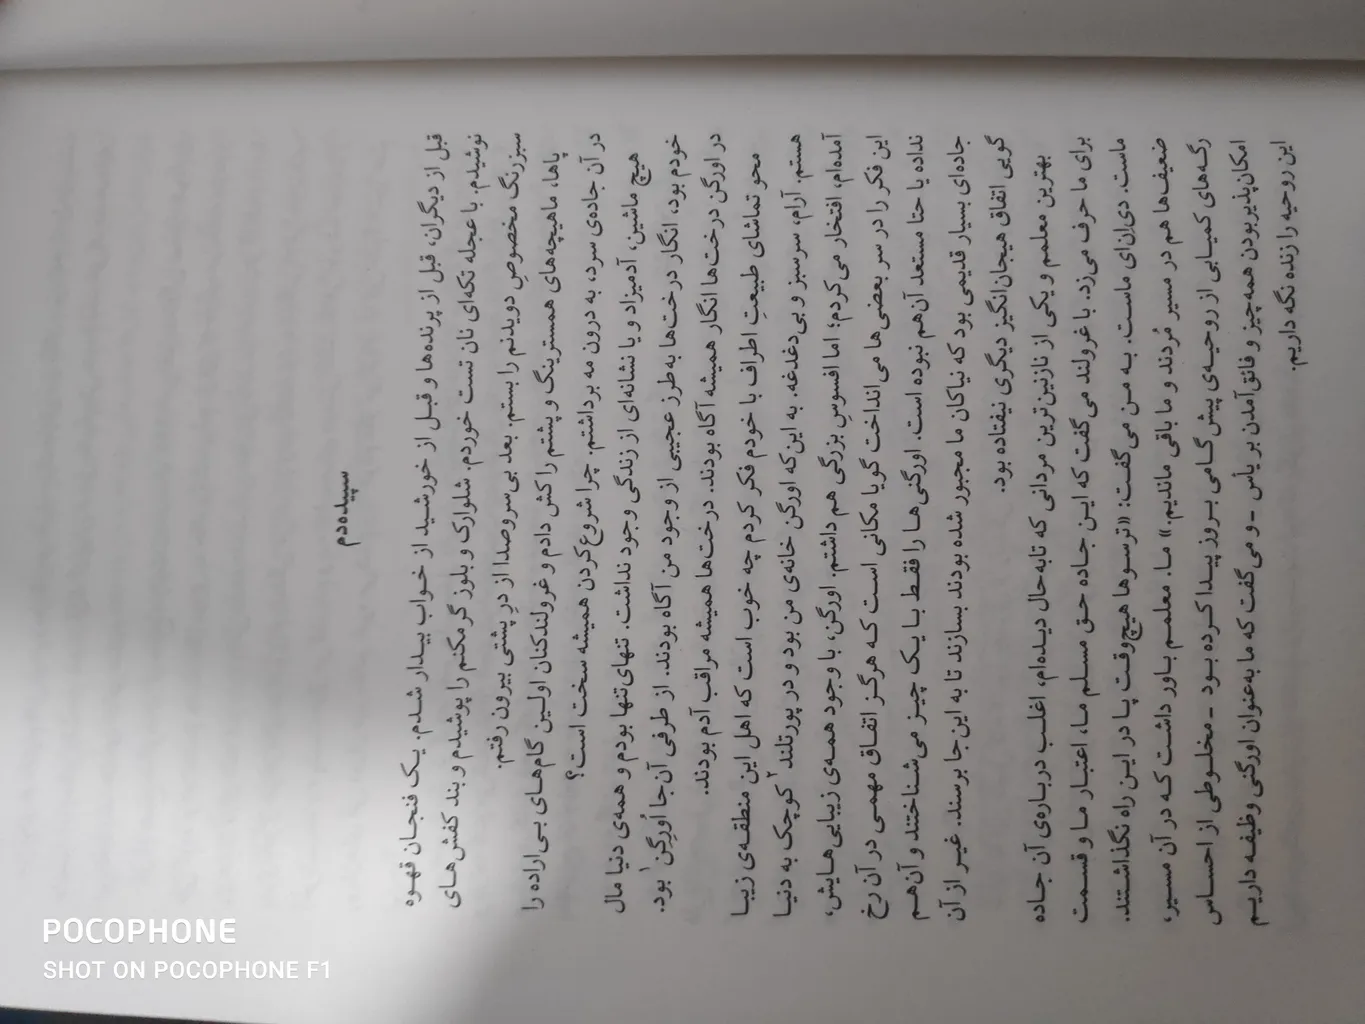 سپیده‌دم
قبل از دیگران، قبل از پرنده‌ها و قبـل از خورشیـد از خـواب بیـدار شـدم. یـک فنجـان قهـوه
نوشیدم. با عجله تکه‌ای نان تست خوردم. شلوارک و بلوز گرمکنم را پوشیدم و بند کفش‌هـای
سبزرنگ مخصوصِ دویدنم را بستم. بعد بی‌سروصدا از درِ پشتی بیرون رفتم.
پاها، ماهیچه‌های همسترینگ و پشتم را کش دادم و غرولندکنان اولـین گام‌هـای بـی‌اراده را
در آن جاده‌ی سرد، به درون مه برداشتم. چرا شروع‌کردن همیشه سخت است؟
هیچ ماشین، آدمیزاد و یا نشانه‌ای از زندگی وجود نداشت. تنهای‌تنها بودم و همه‌ی دنیا مال
خودم بود، انگار درخت‌ها به‌طرز عجیبی از وجود من آگاه بودند. از طرفی آن‌جا اُورِگِن۱ بود.
در اورگن درخت‌ها انگار همیشه آگاه بودند. درخت‌ها همیشه مراقب آدم بودند.
محو تماشای طبیعتِ اطراف با خودم فکر کردم چه خوب است که اهل این منطقـه‌ی زیبـا
هستم. آرام، سرسبز و بی‌دغدغه. به این‌که اورگن خانه‌ی من بود و در پورتلند۲ کوچک به دنیـا
آمده‌ام، افتخار می‌کردم؛ اما افسوسِ بزرگی هم داشتم. اورگن، با وجود همـه‌ی زیبایی‌هـایش،
این فکر را در سر بعضی‌ها می‌انداخت گویا مکانی اسـت کـه هرگـز اتفـاق مهمـی در آن رخ
نداده یا حتا مستعد آن‌هم نبوده است. اورگنی‌هـا را فقـط بـا یـک چیـز می‌شـناختند و آن‌هـم
جاده‌ای بسیار قدیمی بود که نیاکان ما مجبور شده بودند بسازند تا به این‌جا برسند. غیـر از آن
گویی اتفاق هیجان‌انگیز دیگری نیفتاده بود.
بهترین معلمم و یکی از نازنین‌ترین مردانی که تابه‌حال دیـده‌ام، اغلـب دربـاره‌ی آن جـاده
برای ما حرف می‌زد. با غرولند می‌گفت که ایـن جـاده حـق مسـلم مـا، اعتبـار مـا و قسـمت
ماست. دی‌اِن‌اِی ماست. بـه مـن می‌گفـت: «ترسـوها هیچ‌وقـت پـا در ایـن راه نگذاشـتند.
ضعیف‌ها هم در مسیر مُردند و ما باقی ماندیم.» مـا. معلمـم بـاور داشـت کـه در آن مسـیر،
رگـه‌های کمیـابی از روحیـه‌ی پیش‌گـامی بـروز پیـدا کـرده بـود ـ مخلـوطی از احسـاس
امکان‌پذیربودن همه‌چیز و فائق‌آمدن بر یأس ـ و می‌گفت که ما به‌عنوان اورگنی وظیفـه داریـم
این روحیه را زنده نگه داریم.
POCOPHONE
SHOT ON POCOPHONE F1